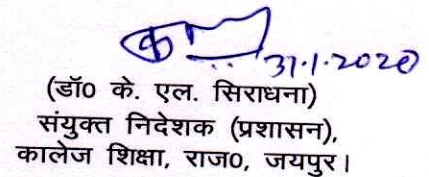 31.1.2020
(डॉ0 के. एल. सिराधना)
संयुक्त निदेशक (प्रशासन),
कालेज शिक्षा, राज0, जयपुर।